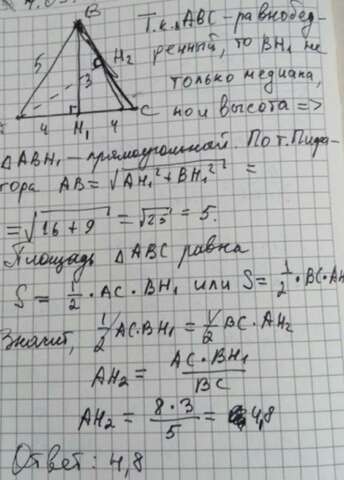 B
Т.к. △ABC - равнобед-
ренный, то BH₁ не
только медиана,
но и высота =>
5
3
H₂
4
H₁
4
C
△ABH₁ - прямоугольный. По т. Пифа-
гора AB = √AH₁² + BH₁² =
= √16 + 9 = √25 = 5.
Площадь △ABC равна
S = 1/2 · AC · BH₁ или S = 1/2 · BC · AH
Значит, 1/2 AC · BH₁ = 1/2 BC · AH₂
AH₂ = AC · BH₁ / BC
AH₂ = 8 · 3 / 5 = 4,8
Ответ: 4,8